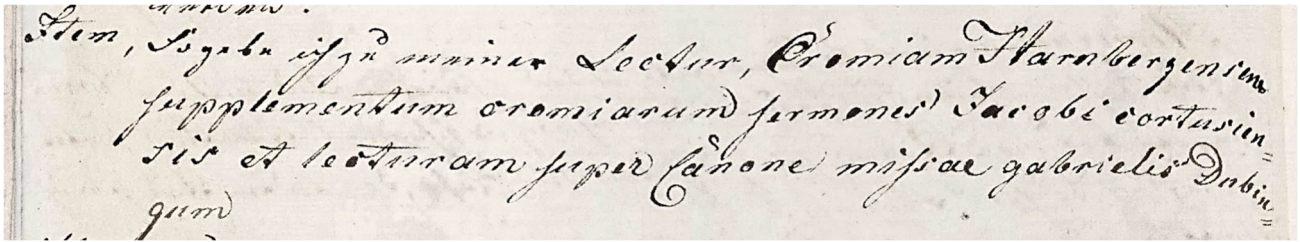 Item, So gebe ich zu meiner Lectur, Cromiam Harnbergensem
supplementum cromiarum sermones Jacobi cortusien=
sis et lecturam super Canone missae gabrielis Dubin=
gum